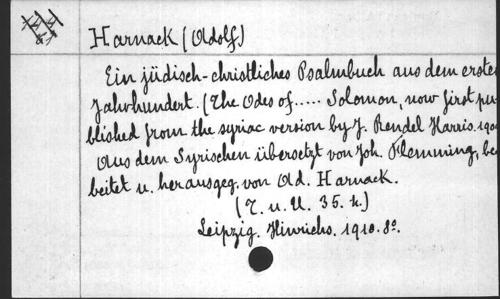 Harnack (Adolf)
Ein jüdisch-christliches Psalmbuch aus dem ersten
Jahrhundert. (The Odes of ..... Solomon, now first pu-
blished from the syriac version by J. Rendel Harris. 190
Aus dem Syrischen übersetzt von Joh. Flemming, be
beitet u. herausgeg. von Ad. Harnack.
(T. u. U. 35. 4.)
Leipzig. Hinrichs. 1910. 8º.